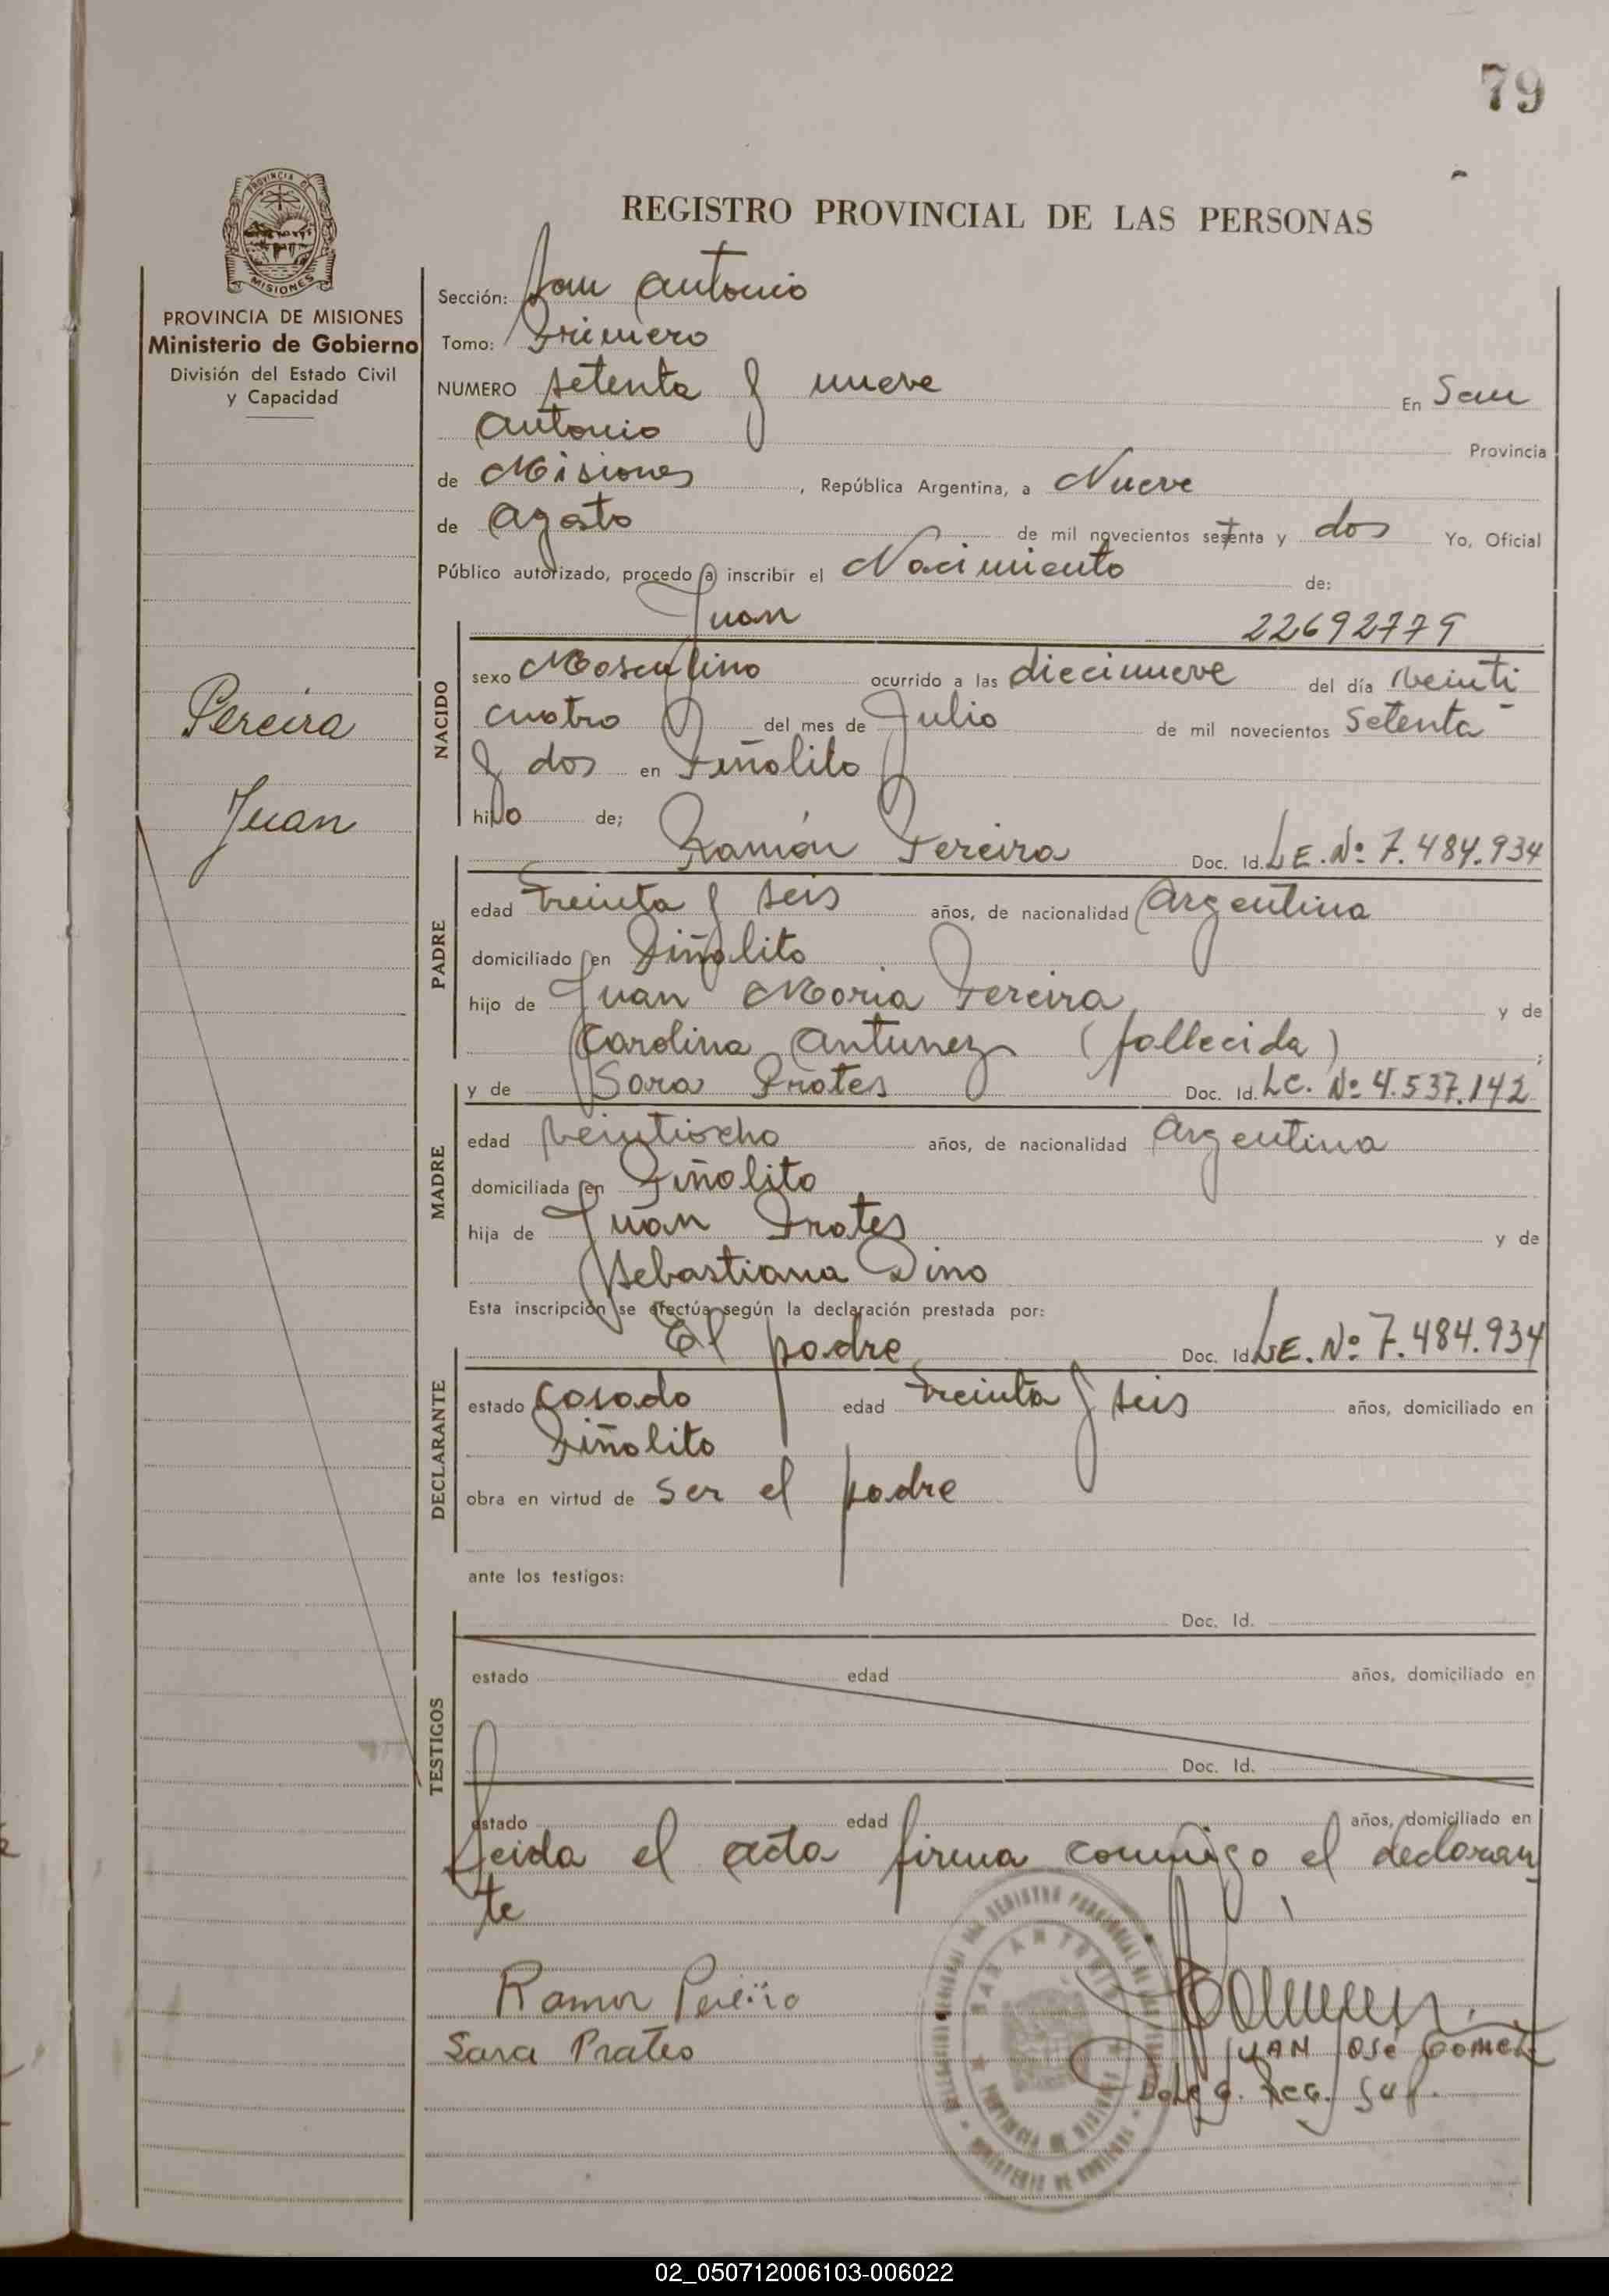 79
REGISTRO PROVINCIAL DE LAS PERSONAS
PROVINCIA DE MISIONES
Ministerio de Gobierno
División del Estado Civil
y Capacidad
Pereira
Juan
Sección: San Antonio
Tomo: Primero
NUMERO setenta y nueve En San
Antonio Provincia
de Misiones, República Argentina, a Nueve
de Agosto de mil novecientos setenta y dos Yo, Oficial
Público autorizado, procedo a inscribir el Nacimiento de:
Juan 22692779
NACIDO
sexo Masculino ocurrido a las diecinueve del día veinti
cuatro del mes de Julio de mil novecientos setenta
y dos en Piñalito
hijo de;
Ramón Pereira Doc. Id. L.E. Nº 7.484.934
PADRE
edad treinta y seis años, de nacionalidad Argentina
domiciliado en Piñalito
hijo de Juan Maria Pereira y de
Carolina Antunez (fallecida) ;
y de Sara Prates Doc. Id. L.C. Nº 4.537.142
MADRE
edad veintiocho años, de nacionalidad Argentina
domiciliada en Piñalito
hija de Juan Prates y de
Sebastiana Dino
Esta inscripción se efectúa según la declaración prestada por:
El padre Doc. Id. L.E. Nº 7.484.934
DECLARANTE
estado casado edad treinta y seis años, domiciliado en
Piñalito
obra en virtud de ser el padre
ante los testigos:
Doc. Id.
TESTIGOS
estado edad años, domiciliado en
Doc. Id.
estado edad años, domiciliado en
Leida el acta firma conmigo el declaran
te
Ramon Pereira
Sara Prates
JUAN José Gomez
Deleg. Reg. Sup.
02_050712006103-006022